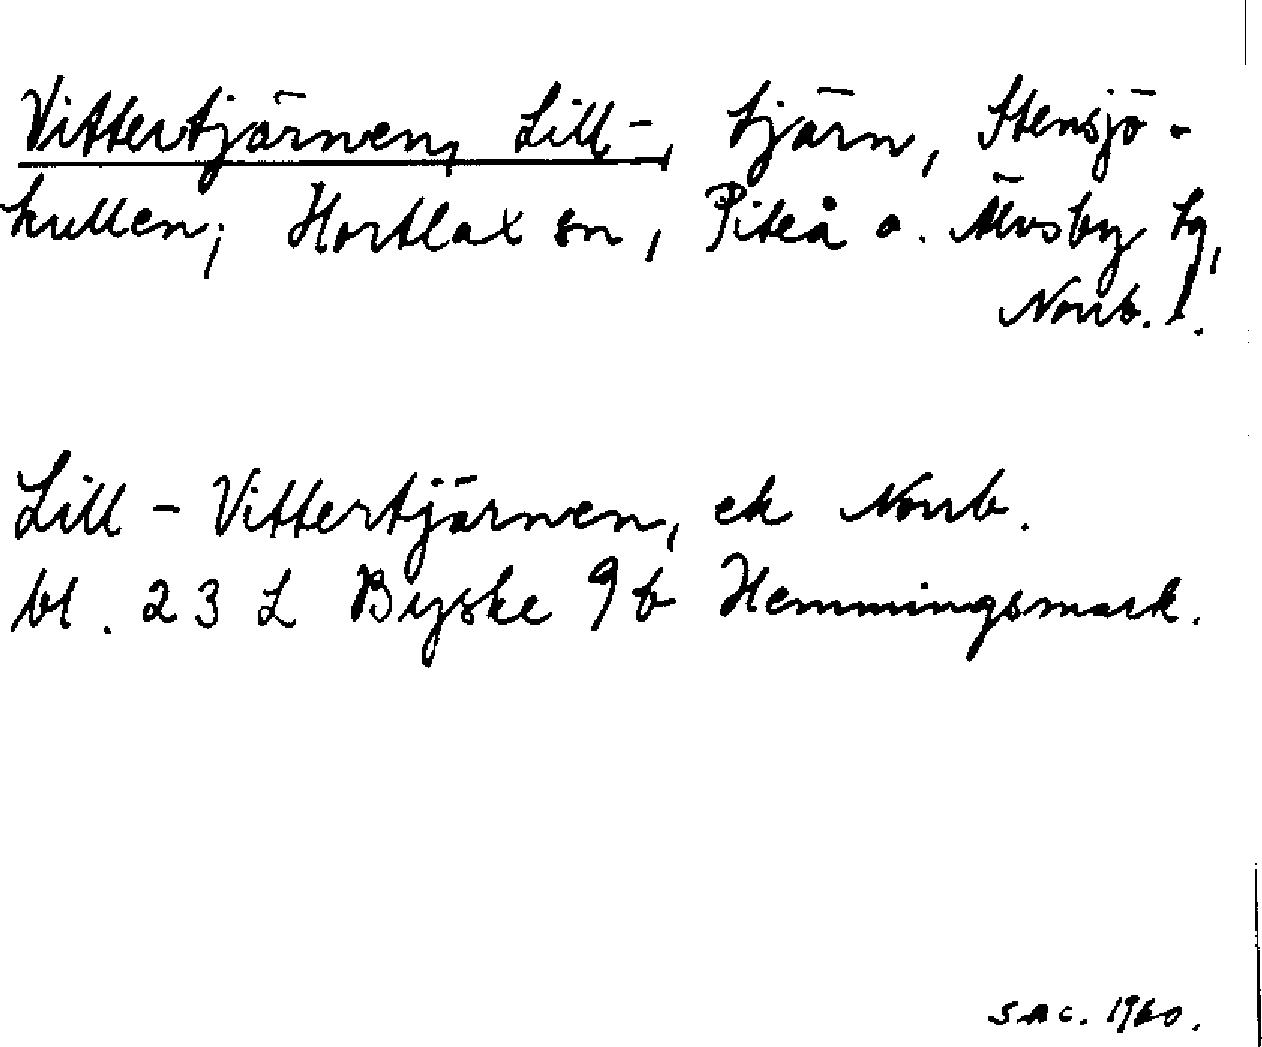 Vittertjärnen, Lill-, tjärn, Stensjö-
kullen; Hortlax sn, Piteå o. Älvsby tg,
Norrb. l.
Lill-Vittertjärnen, ek Norrb.
bl. 23 L Byske 9 b Hemmingsmark.
SAC. 1960.